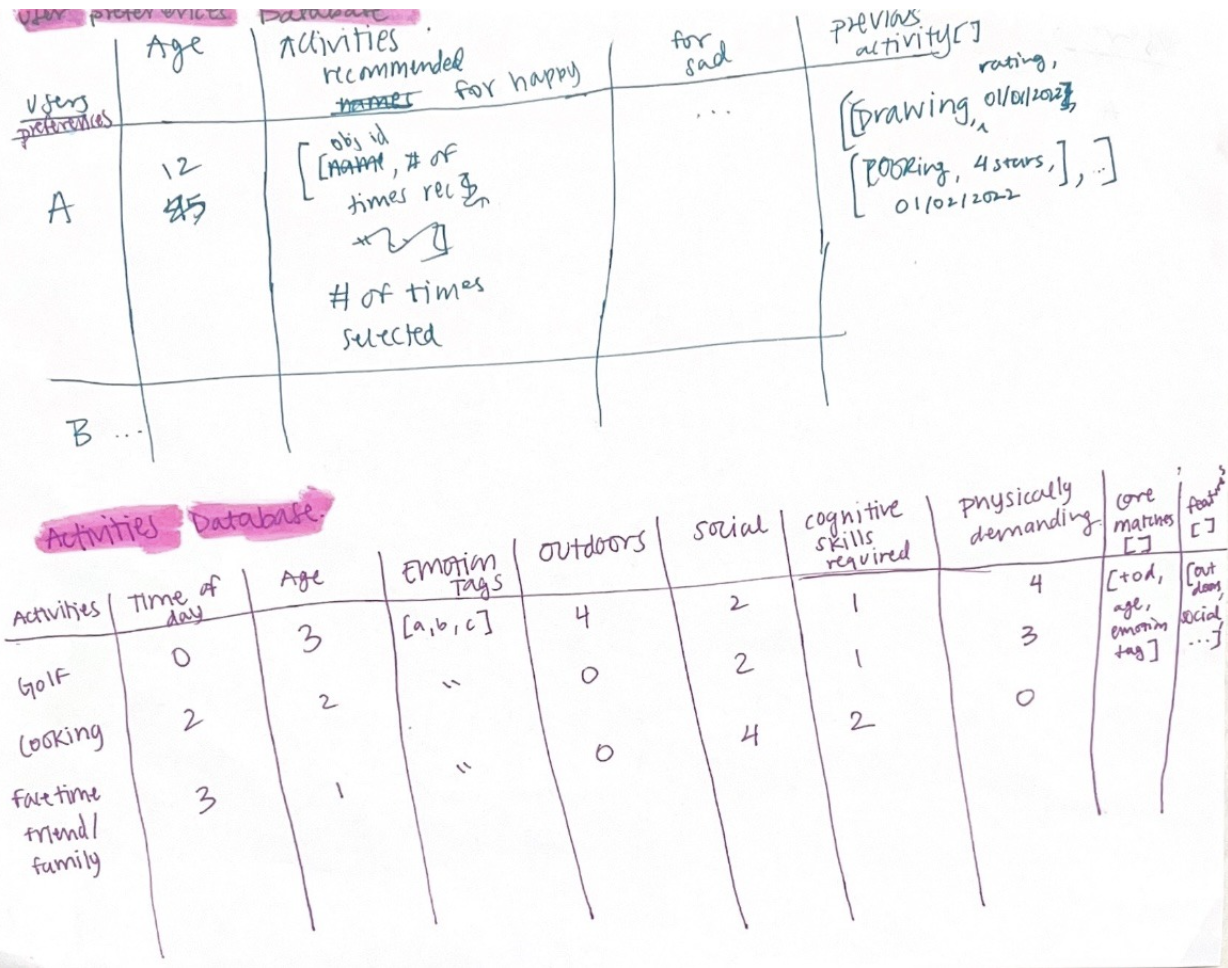 User preferences Database
Age
Activities
recommended
names for happy
for
sad
previous
activity[]
Users
preferences
rating,
[[Drawing, 01/01/2022],
[cooking, 4 stars, ], ..]
01/02/2022
...
A
12
45
obj id
[[name, # of
times rec
# of times
selected
B ...
Activities Database
Activities
Time of
day
Age
Emotion
Tags
outdoors
social
cognitive
skills
required
physically
demanding
core
matches
[]
features
[]
Golf 0 3 [a,b,c] 4 2 1 4
[tod,
age,
emotion
tag]
[out
doors,
social,
...]
Cooking 2 2 " 0 2 1 3
Facetime 3 1 " 0 4 2 0
friend/
family